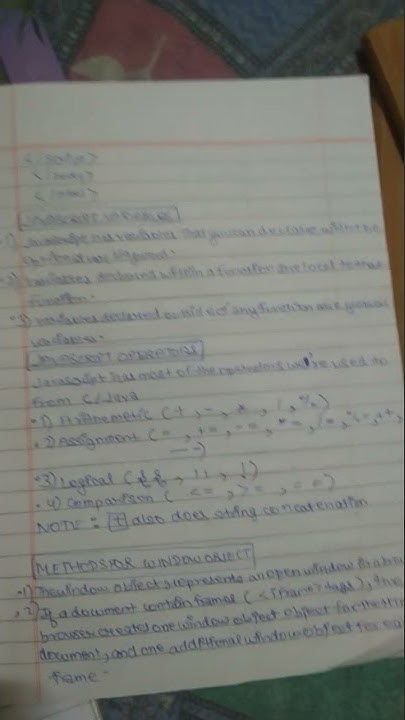 </script>
</body>
</html>
JAVASCRIPT VARIABLES
1) Javascript has variables that you can declare with the
optional var
2) variables declared within a function are local to that
function.
3) variables declared outside of any function are global
variables.
JAVASCRIPT OPERATORS
Javascript has most of the operators we're used to
from C/Java
1) Arithmetic (+, -, *, /, %)
2) Assignment (=, +=, -=, *=, /=, %=, ++,
--)
3) Logical (&&, ||, !)
4) Comparison ( <=, >=, ==)
NOTE : + also does string concatenation
METHODS FOR WINDOW OBJECT
1) The window object represents an open window in a
2) If a document contain frames (<iframe> tags), the
browser creates one window object object for the
document, and one additional window object for
frame.